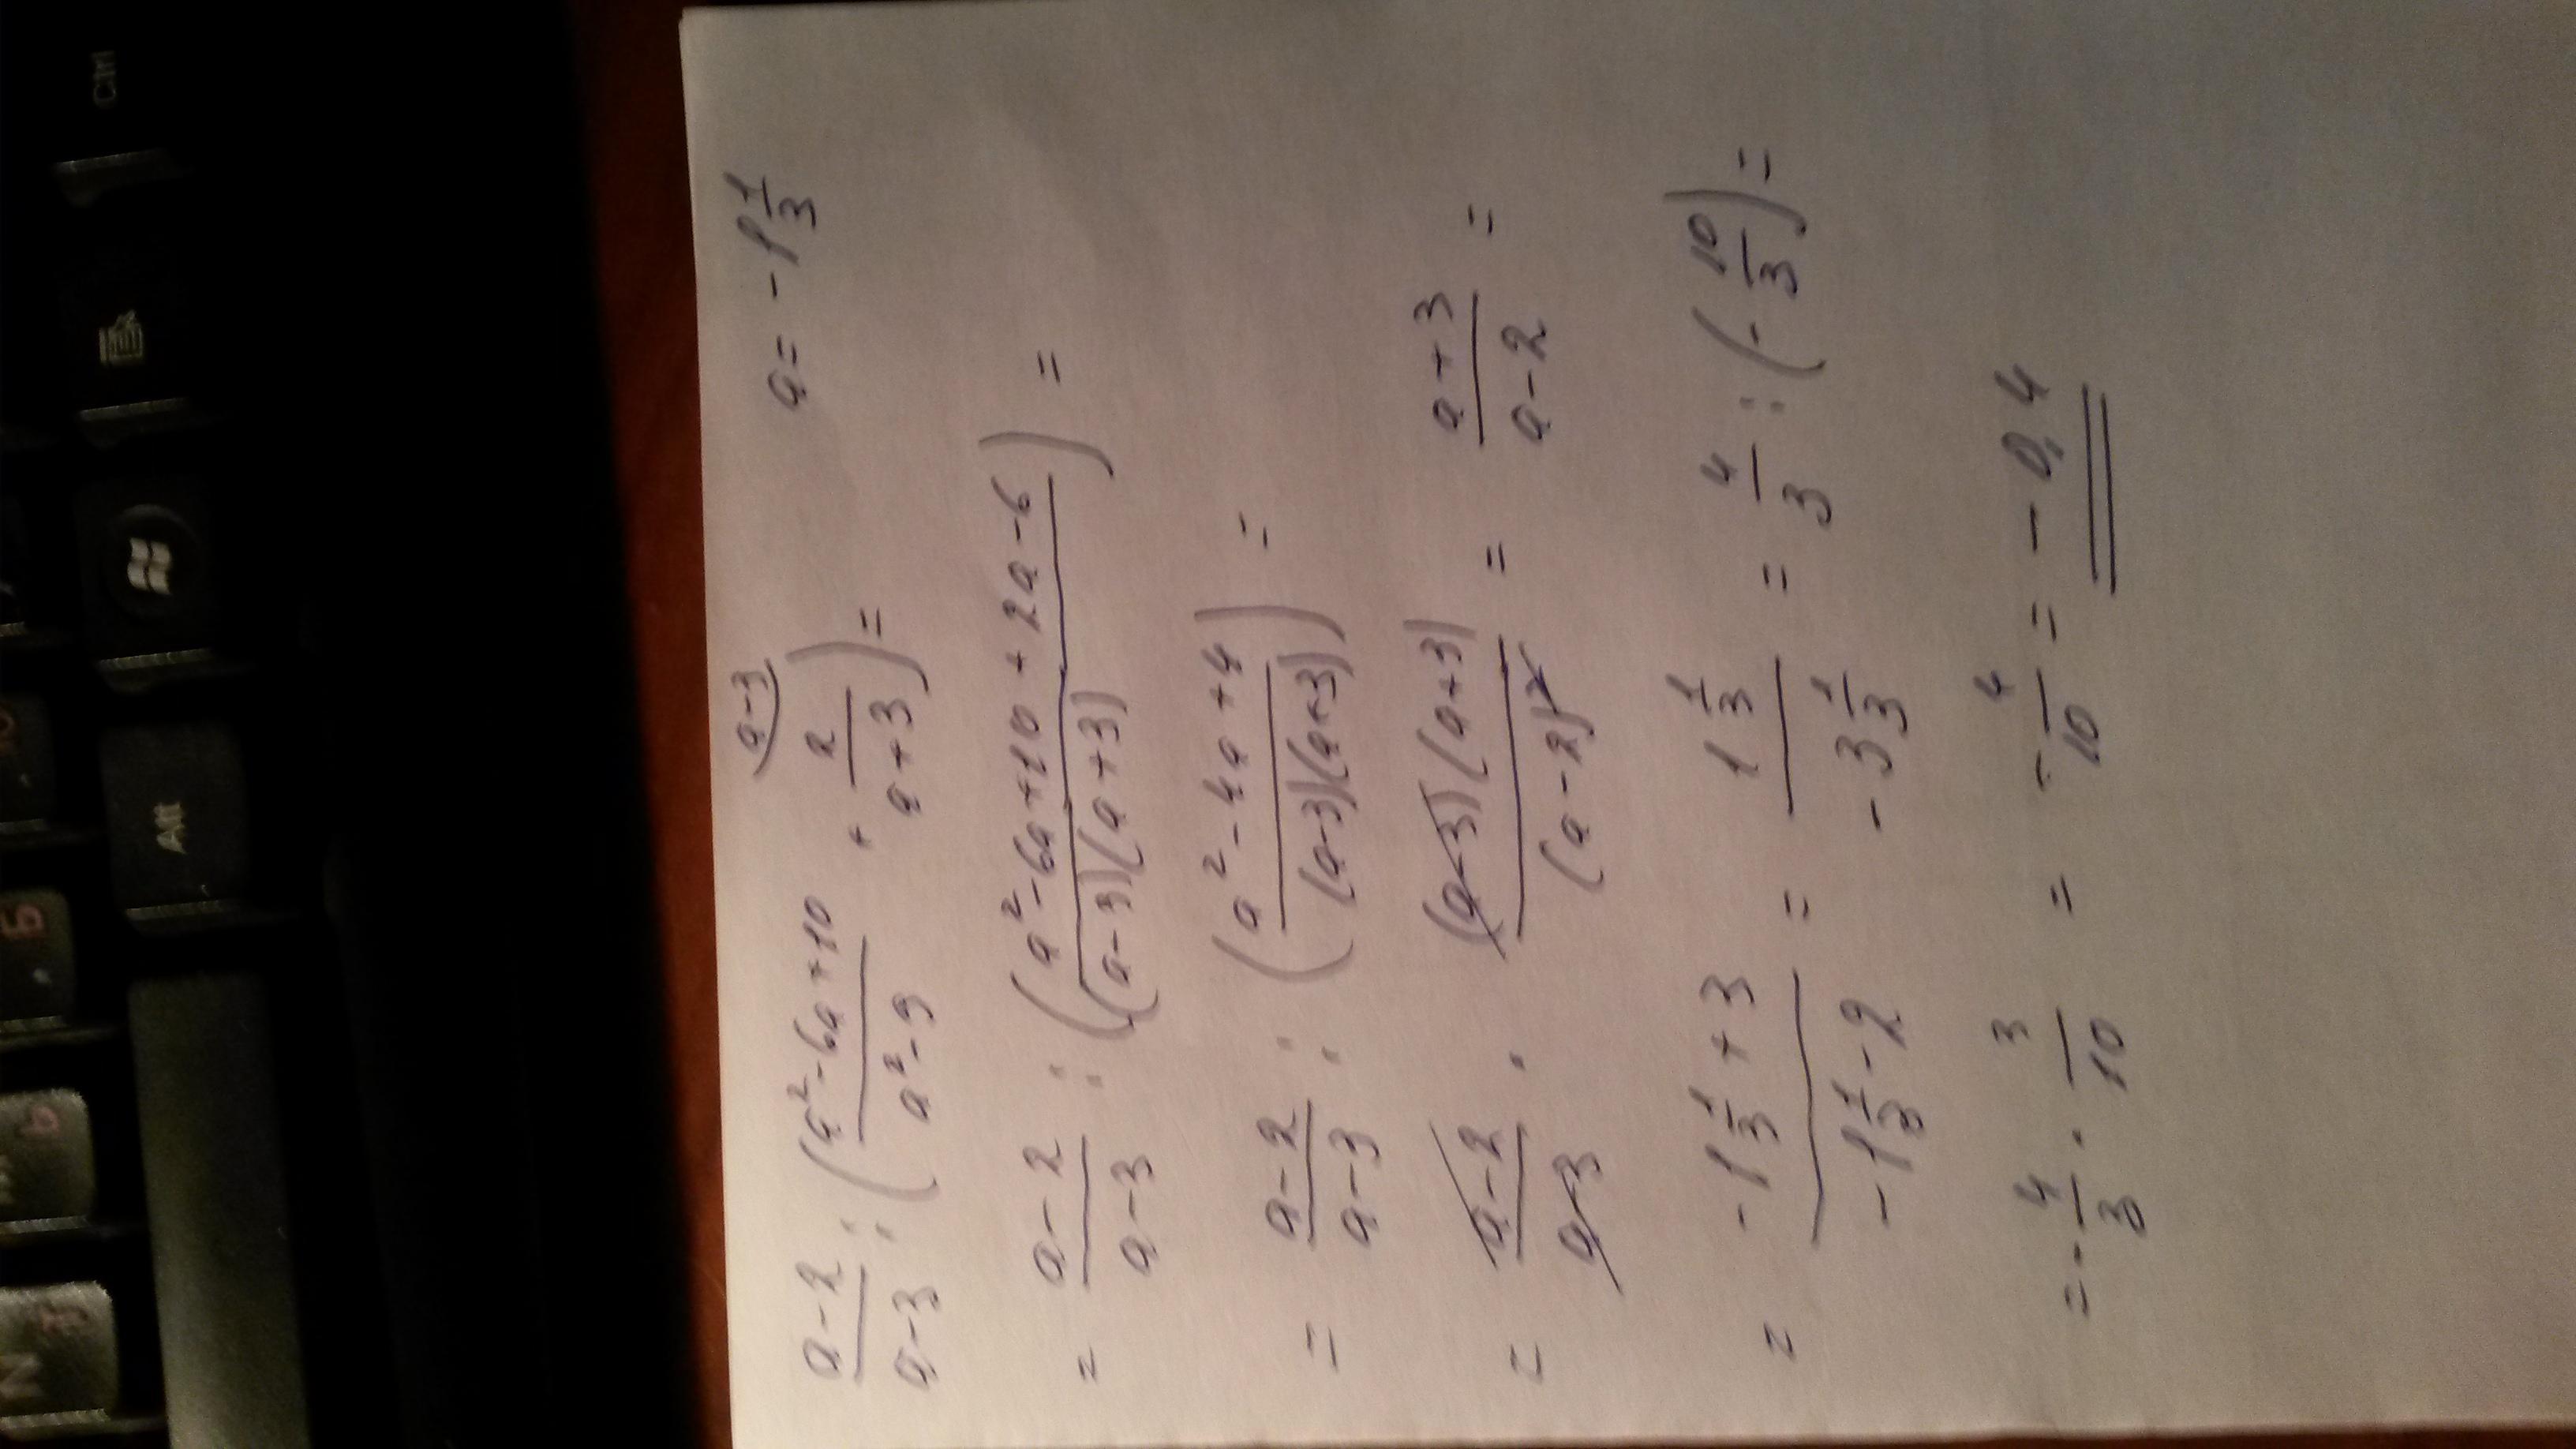 a-2/a-3 : (a²-6a+10/a²-9 + 2/a+3 (a-3) = a = -1 1/3
= a-2/a-3 : (a²-6a+10+2a-6/(a-3)(a+3)) =
= a-2/a-3 : (a²-4a+4/(a-3)(a+3)) =
= a-2/a-3 · (a-3)(a+3)/(a-2)² = a+3/a-2 =
= -1 1/3+3/-1 1/3-2 = 1 1/3/-3 1/3 = 4/3 : (-10/3) =
= -4/3 · 3/10 = -4/10 = -0,4
Ctrl
Alt
Б
Ь
N